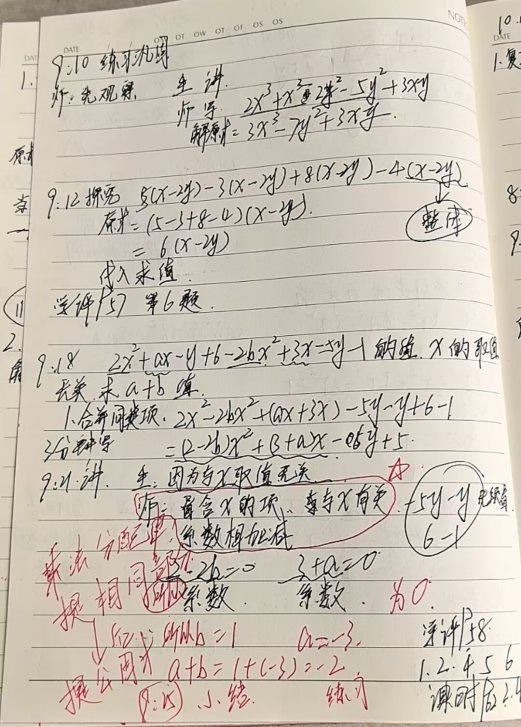 DATE
9:10 练习巩固
师:先观察 生讲
师写 2x³+x³-2y²-5y²+3xy
解原式=3x³-7y²+3xy
9:12 探究 5(x-2y)-3(x-2y)+8(x-2y)-4(x-2y)
原式=(5-3+8-4)(x-2y) 整体
=6(x-2y)
代入求值
学评P57 第6题
9:18 2x²+ax-y+6-2bx²+3x-5y-1的值, x的取值
无关, 求a+b值
1.合并同类项. 2x²-2bx²+(ax+3x)-5y-y+6-1
3分钟写 =(2-2b)x²+(3+a)x-6y+5.
9:21.讲. 生:因为与x取值无关
师: 含x的项、 与x有关 -5y-y
乘法分配律 系数相加减 6-1
提相同部分 2-2b=0 3+a=0
系数 系数 为0
b=1 a=-3. 学评P58
提公因式 a+b=1+(-3)=-2 1.2.4 5 6
9:25 小结 练习 课时